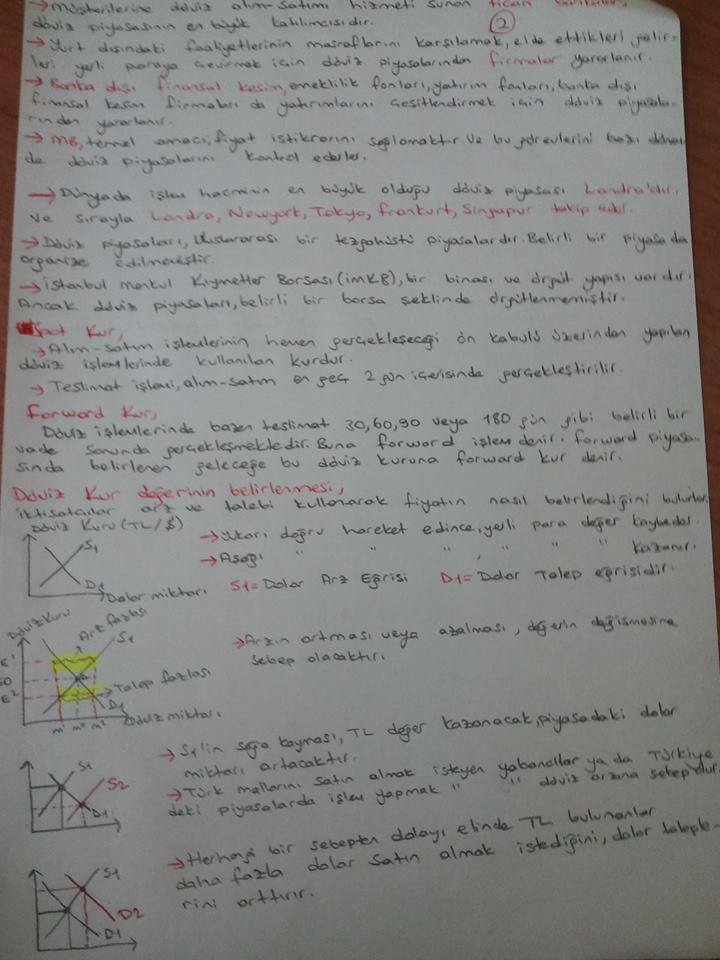 → Müşterilerine döviz alım-satımı hizmeti sunan ticari
döviz piyasasının en büyük katılımcısıdır.
2
→ Yurt dışındaki faaliyetlerinin masraflarını karşılamak, elde ettikleri gelir-
leri yerli paraya çevirmek için döviz piyasalarından firmalar yararlanır.
→ Banka dışı finansal kesim, emeklilik fonları, yatırım fonları, banka dışı
finansal kesim firmaları da yatırımlarını çeşitlendirmek için döviz piyasala-
rından yararlanır.
→ MB, temel amacı, fiyat istikrarını sağlamaktır. Ve bu görevlerini bazı
de döviz piyasalarını kontrol ederler.
→ Dünyada işlem hacminin en büyük olduğu döviz piyasası Londra'dır.
Ve sırayla Londra, Newyork, Tokyo, Frankurt, Singapur takip eder.
→ Döviz piyasaları, Uluslararası bir tezgahüstü piyasalardır. Belirli bir piyasada
organize edilmemiştir.
→ İstanbul Menkul Kıymetler Borsası (İMKB), bir binası ve örgüt yapısı vardır.
Ancak döviz piyasaları, belirli bir borsa şeklinde örgütlenmemiştir.
Spot Kur,
→ Alım-satım işlemlerinin hemen gerçekleşeceği ön kabulü üzerinden yapılan
döviz işlemlerinde kullanılan kurdur.
→ Teslimat işlemi, alım-satım en geç 2 gün içerisinde gerçekleştirilir.
Forward Kur,
Döviz işlemlerinde bazen teslimat 30, 60, 90 veya 180 gün gibi belirli bir
vade sonunda gerçekleşmektedir. Buna forward işlem denir. Forward piyasa-
sında belirlenen geleceğe bu döviz kuruna forward kur denir.
Döviz Kur değerinin belirlenmesi,
İktisatçılar arz ve talebi kullanarak fiyatın nasıl belirlendiğini bulurlar.
Döviz Kuru (TL/$)
S1
D1
Dolar miktarı
→ Yukarı doğru hareket edince, yerli para değer kaybeder.
→ Aşağı " " " , " " " kazanır.
S1= Dolar Arz Eğrisi D1= Dolar Talep eğrisidir.
Döviz Kuru
Arz fazlası
S1
E¹
E0
E²
Talep fazlası
D1
m¹ m⁰ m²
Döviz miktarı
→ Arzın artması veya azalması, değerin değişmesine
sebep olacaktır.
S1
S2
D1
→ S1'in sağa kayması, TL değer kazanacak, piyasadaki dolar
miktarı artacaktır.
→ Türk mallarını satın almak isteyen yabancılar ya da Türkiye
deki piyasalarda işlem yapmak " " döviz arzına sebep olur.
S1
D2
D1
→ Herhagi bir sebepten dolayı elinde TL bulunanlar
daha fazla dolar satın almak istediğini, dolar taleple-
rini arttırır.